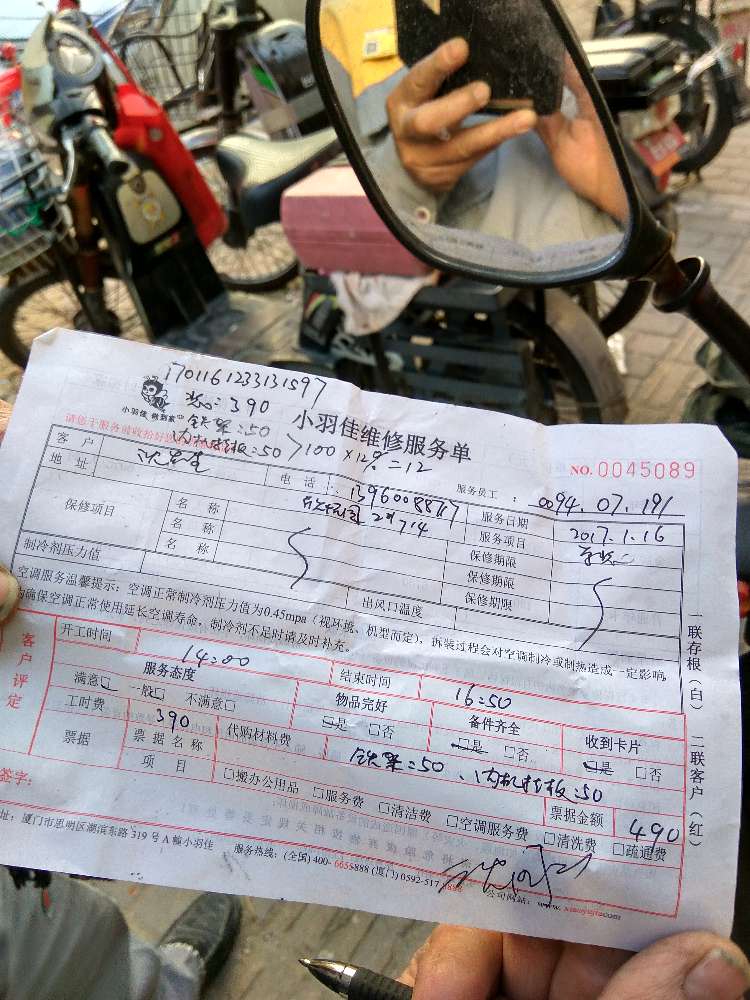 1701161233131597
小羽佳 做到家
:390
铁架:50
内机挂板:50 >100×12%=12
小羽佳维修服务单
NO. 0045089
服务员工： 0094.07.191
客户 沈先生 电话 13960088717 服务日期 2017.1.16
地址 2#714 服务项目
保修项目 名称 保修期限
名称 保修期限
名称 保修期限
制冷剂压力值 出风口温度
空调服务温馨提示：空调正常制冷剂压力值为0.45mpa（视环境、机型而定），拆装过程会对空调制冷或制热造成一定影响，
为确保空调正常使用延长空调寿命，制冷剂不足时请及时补充。
客户评定
开工时间 14:00 结束时间 16:50
服务态度 物品完好 备件齐全 收到卡片
满意□ 一般□ 不满意□ □是 □否 □是 □否 □是 □否
工时费 390 代购材料费 铁架:50、内机挂板:50
票据 票据名称 项目 □搬办公用品 □服务费 □清洁费 □空调服务费 □清洗费 □疏通费
票据金额 490
签字：
址：厦门市思明区湖滨东路 319 号 A 幢小羽佳 服务热线：(全国) 400-6655888 (厦门) 0592-517 公司网站：www.xiaoyujia.com
一联存根（白） 二联客户（红）